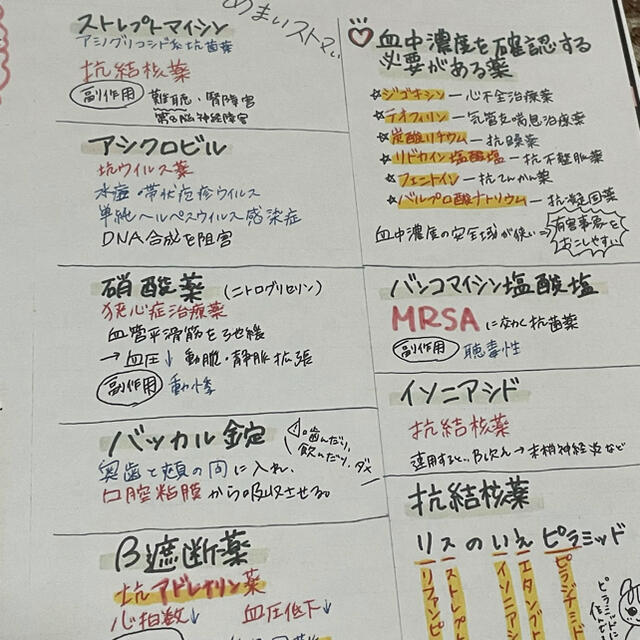 めまいストマイ
ストレプトマイシン
アミノグリコシド系抗菌薬
抗結核薬
副作用 難聴・腎障害
第8脳神経障害
アシクロビル
抗ウイルス薬
水痘・帯状疱疹ウイルス
単純ヘルペスウイルス感染症
DNA合成を阻害
硝酸薬(ニトログリセリン)
狭心症治療薬
血管平滑筋を弛緩
→血圧↓ 動脈・静脈拡張
副作用 動悸
バッカル錠
噛んだり、
飲んだり、ダメ
奥歯と頬の間に入れ、
口腔粘膜から吸収させる。
β遮断薬
抗アドレナリン薬
心拍数↓ 血圧低下↓
血中濃度を確認する
必要がある薬
☆ジゴキシン—心不全治療薬
☆テオフィリン—気管支喘息治療薬
☆炭酸リチウム—抗躁薬
☆リドカイン塩酸塩—抗不整脈薬
☆フェニトイン—抗てんかん薬
☆バルプロ酸ナトリウム—抗
血中濃度の安全域が狭い⇒有害事象を
おこしやすい
バンコマイシン塩酸塩
MRSAに効く抗菌薬
副作用 聴毒性
イソニアシド
抗結核薬
連用すると、B6欠乏→末梢神経炎など
抗結核薬
リスのいえピラミッド
リファンピ
ストレプト
イソニア
エタンブ
ピラジナミド
ピラミッドに